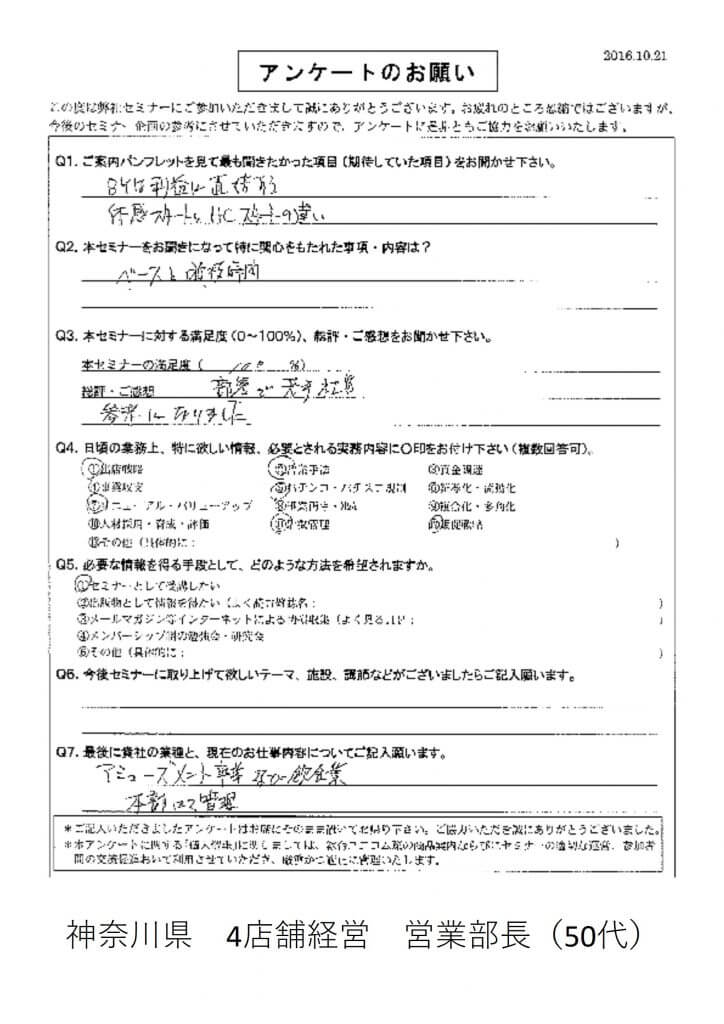 2016.10.21
アンケートのお願い
この度は弊社セミナーにご参加いただきまして誠にありがとうございます。お疲れのところ恐縮ではございますが、
今後のセミナー企画の参考にさせていただきますので、アンケートに是非ともご協力をお願いいたします。
Q1. ご案内パンフレットを見て最も聞きたかった項目(期待していた項目)をお聞かせ下さい。
利益に直結
の違い
Q2. 本セミナーをお聞きになって特に関心をもたれた事項・内容は？
ベースと
時間
Q3. 本セミナーに対する満足度(0～100%)、総評・ご感想をお聞かせ下さい。
本セミナーの満足度 ( 100 %)
総評・ご感想
参考になりました
Q4. 日頃の業務上、特に欲しい情報、必要とされる実務内容に〇印をお付け下さい(複数回答可)。
①出店戦略 ②営業手法 ③資金調達
④事業収支 ⑤パチンコ・パチスロ規制
⑦リニューアル・バリューアップ ⑧事業再生・M&A ⑨複合化・多角化
⑩人材採用・育成・評価
⑬その他 (具体的に： )
Q5. 必要な情報を得る手段として、どのような方法を希望されますか。
①セミナーとして受講したい
②出版物として情報を得たい (よく読む雑誌名： )
③メールマガジン等インターネットによる情報収集 (よく見るHP： )
④メンバーシップ制の勉強会・研究会
⑤その他 (具体的に： )
Q6. 今後セミナーに取り上げて欲しいテーマ、施設、講師などがございましたらご記入願います。
Q7. 最後に貴社の業種と、現在のお仕事内容についてご記入願います。
アミューズメント事業
管理
＊ご記入いただきましたアンケートはお席にそのまま置いてお帰り下さい。ご協力いただき誠にありがとうございました。
＊本アンケートに関する「個人情報」に関しましては、綜合ユニコム㈱の商品案内ならびにセミナーの適切な運営、参加者
間の交流促進において利用させていただき、厳重かつ適正に管理いたします。
神奈川県　4店舗経営　営業部長（50代）